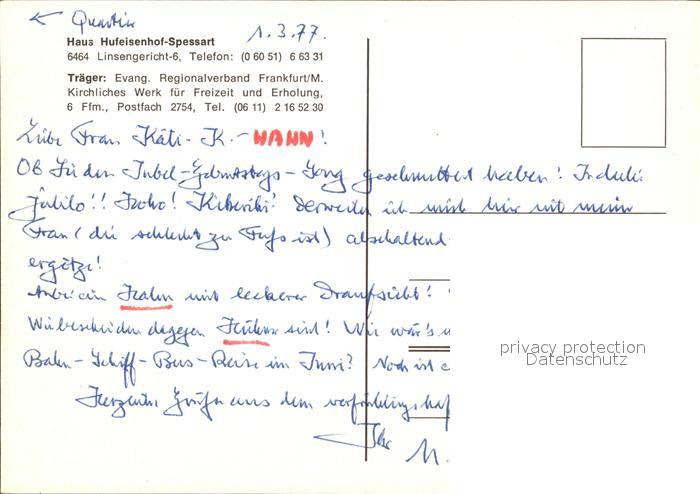 ← Quartier
1.3.77.
Haus Hufeisenhof-Spessart
6464 Linsengericht-6, Telefon: (0 60 51) 6 63 31
Träger: Evang. Regionalverband Frankfurt/M.
Kirchliches Werk für Freizeit und Erholung,
6 Ffm., Postfach 2754, Tel. (06 11) 2 16 52 30
Liebe Frau Käti-K.-HAHN!
Ob Sie den Jubel-Geburtstags-Song geschmettert haben! Induli
Jubilo!! Hoho! Kikeriki! Derweilen ich mich hier mit meiner
Frau (die schlecht zu Fuß ist) abschaltend
ergötze!
Anbei ein Hahn mit leckerer Draufsicht!
Wie bescheiden dagegen Hühner sind! Wie wär's
Bahn-Schiff-Bus-Reise im Juni? Noch ist
Herzliche Grüße aus dem
Ihr M.
privacy protection
Datenschutz